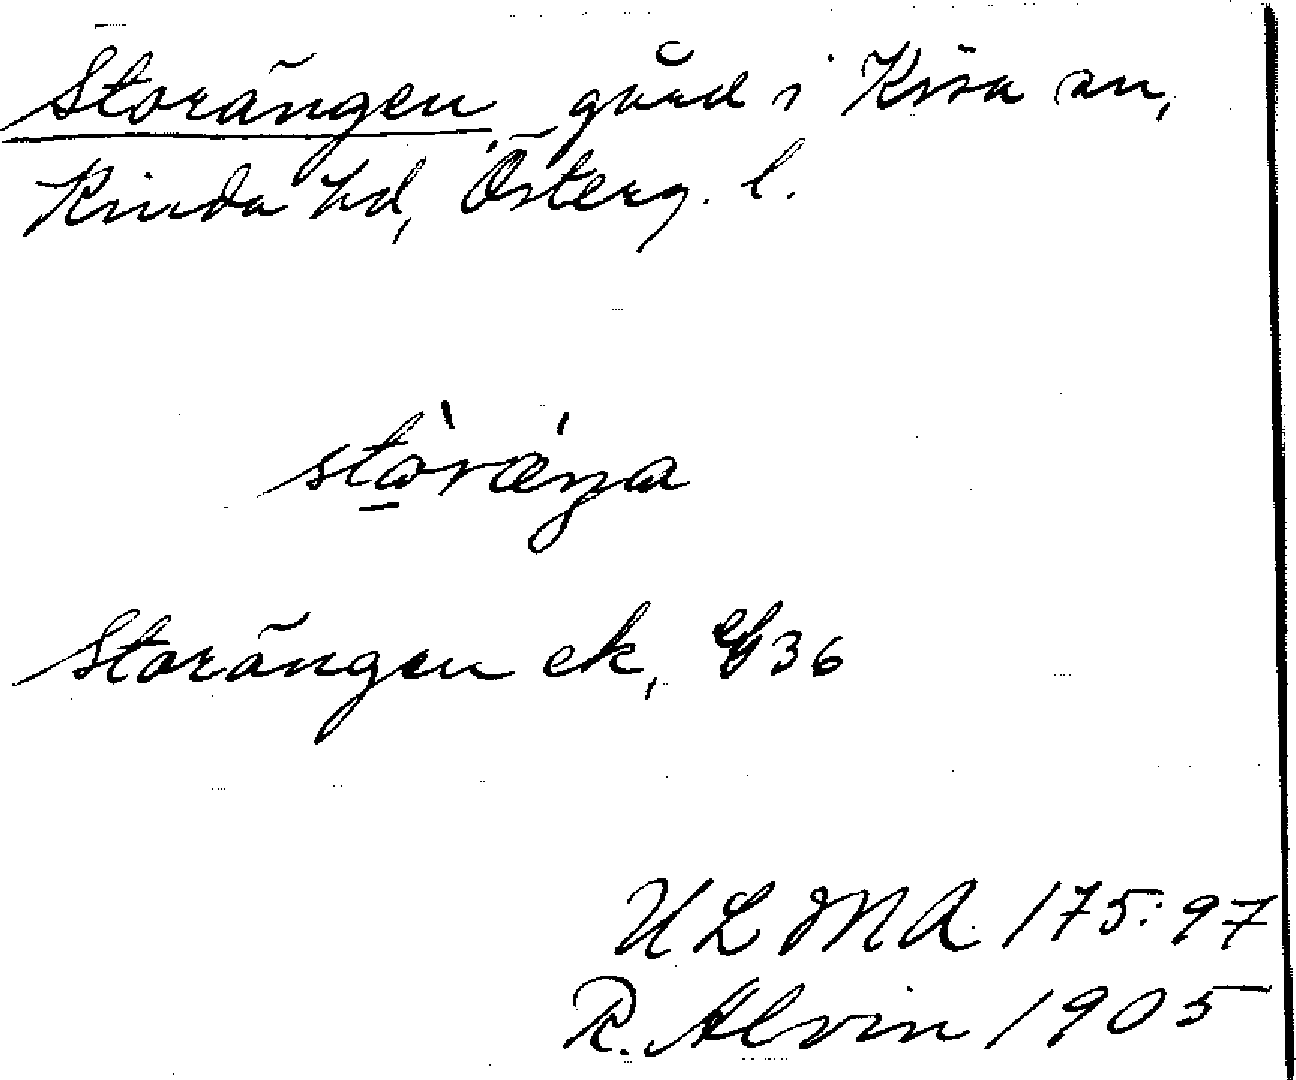 Storängen, gård i Kisa sn,
Kinda hd, Österg. l.
stòrǽŋa
Storängen ek,
ULMA 175:97
R. Alvin 1905